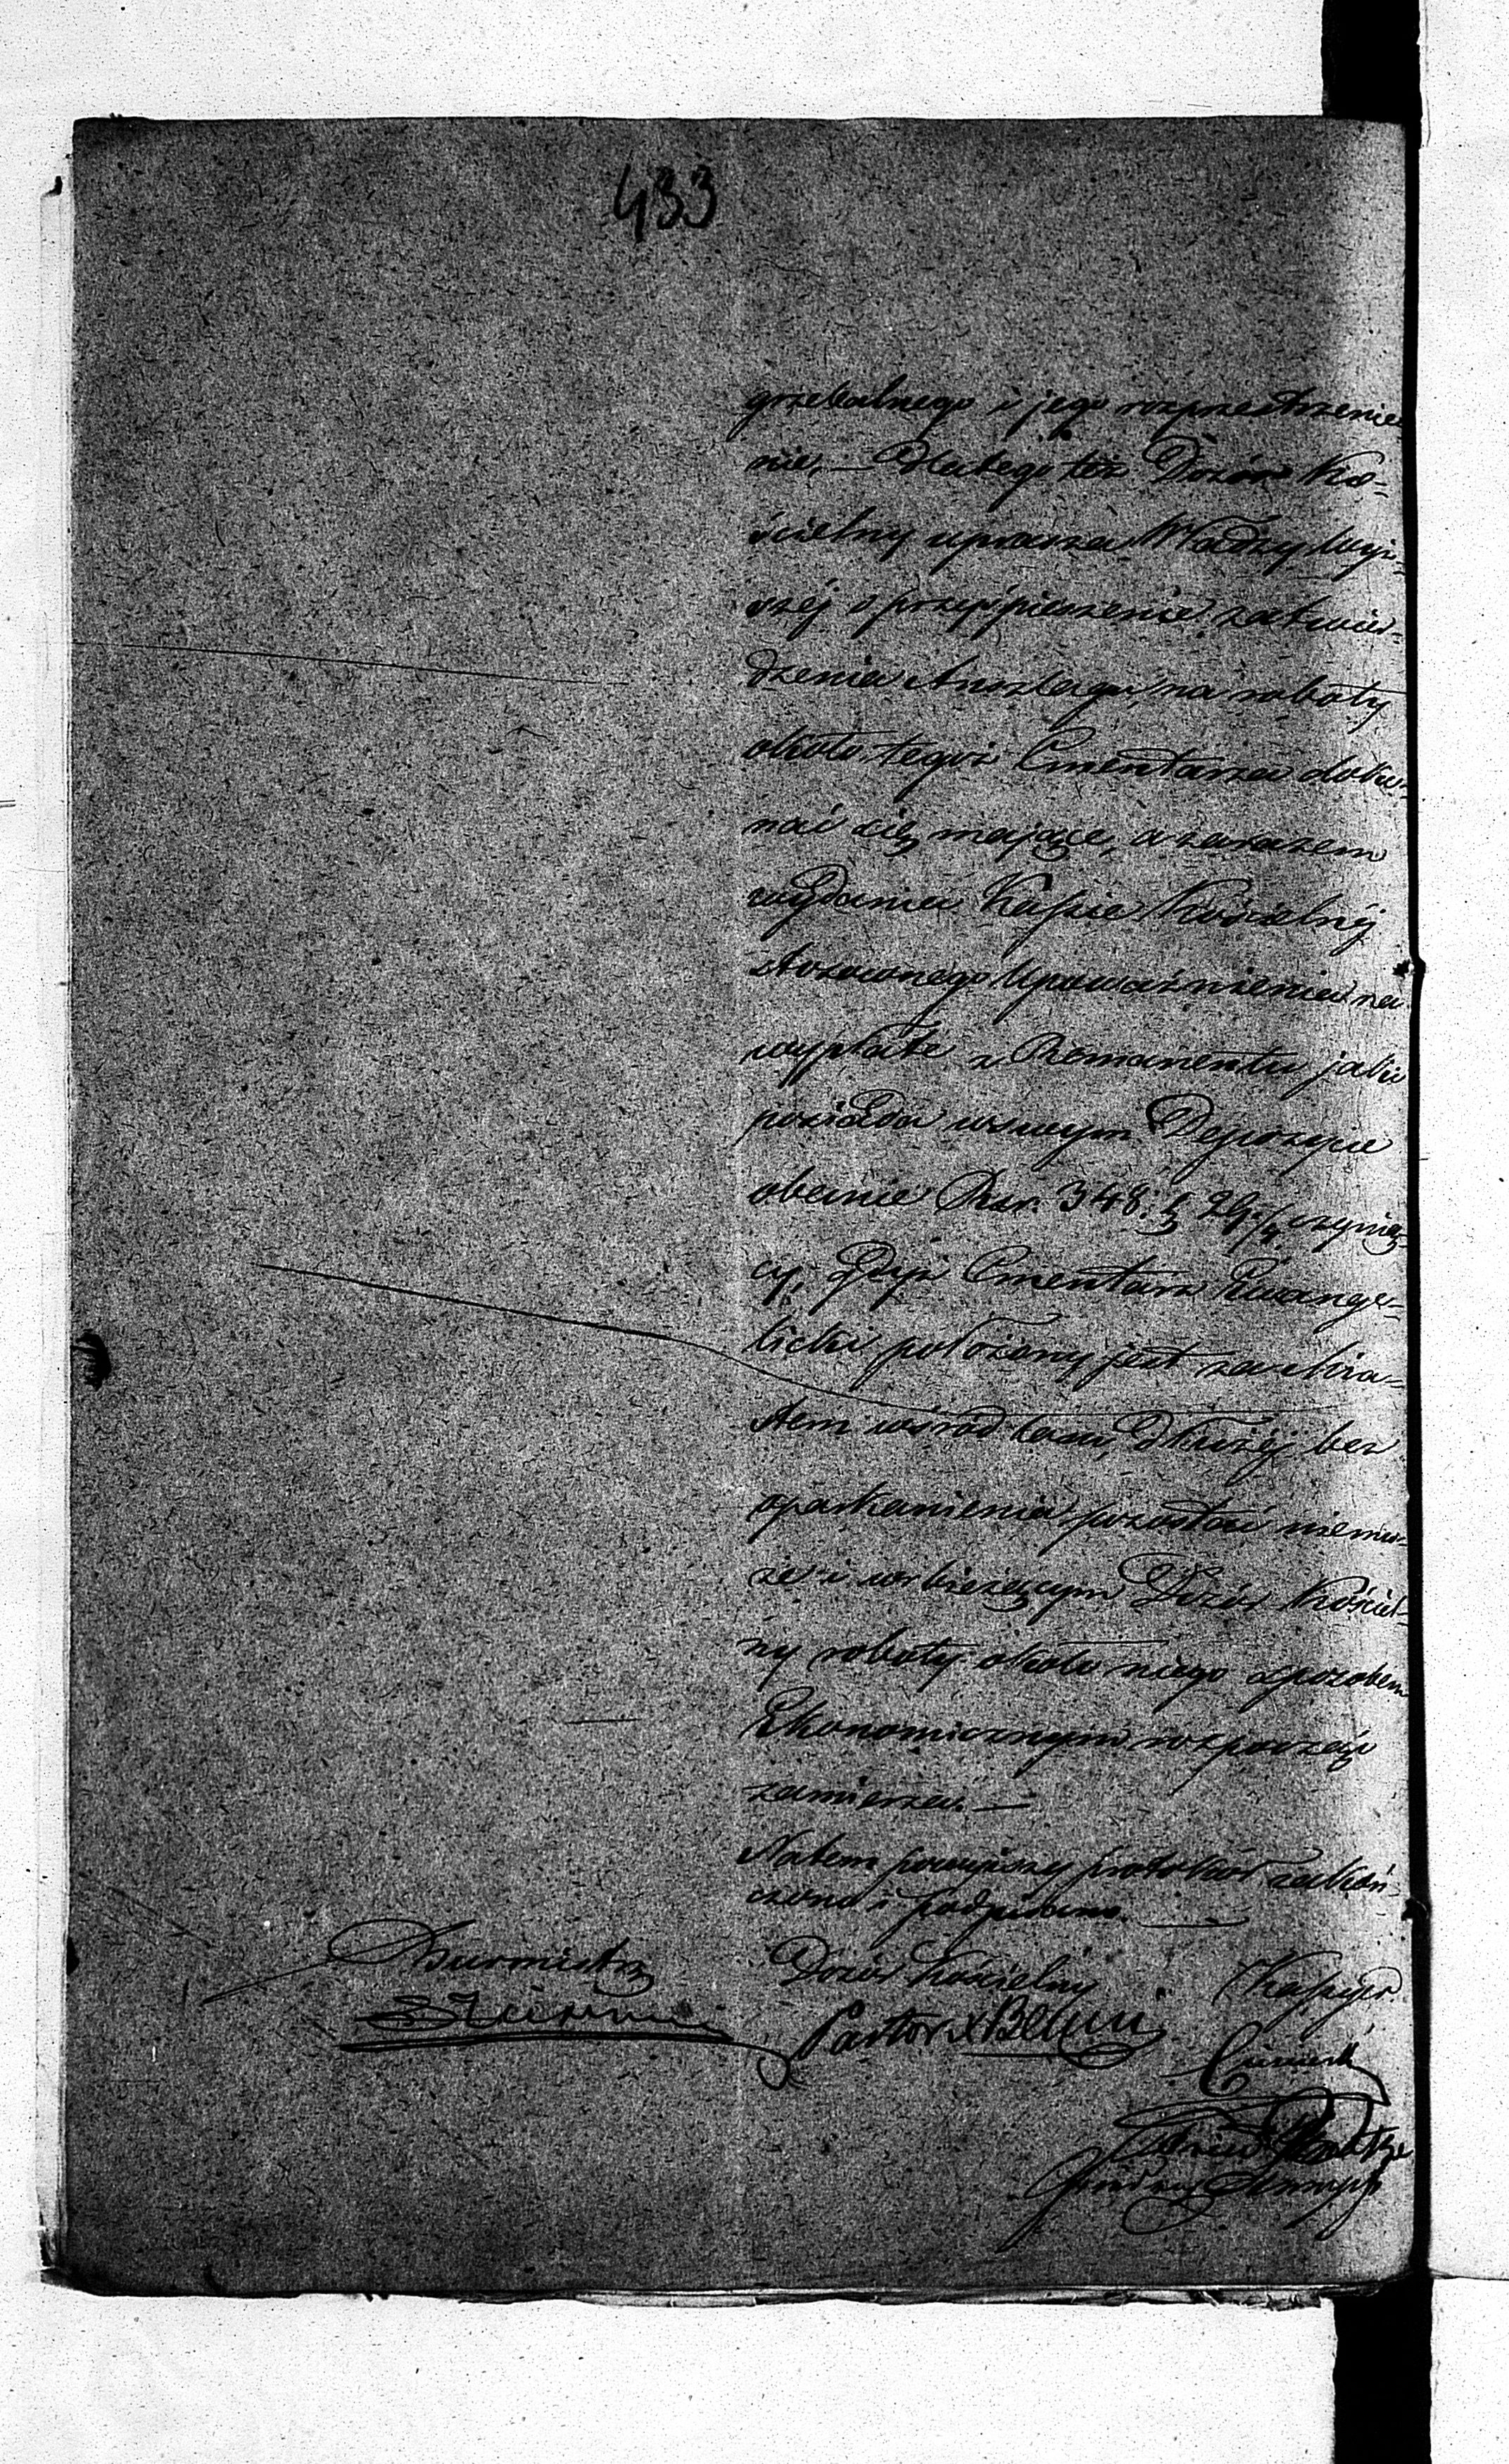 433
grzebalnego i jego rozprzestrzenie
nie. — Dlatego też Dozór Ko-
ścielny uprasza Władzy Wyż-
széj o przyśpieszenie zatwier-
dzenia Anszlagu, na roboty
około tegoż Cmentarza doko-
nać się mające, a zarazem
wydania Kassie Kościelnéj
stosownego Upoważnienia na
wypłatę z Remanentu jaki
posiada w swym Depozycie
obecnie Rsr. 348: k 29 czynią-
cy, Gdyż Cmentarz Ewange-
licki położony jest za Mia-
stem wśród lasu, dłużéj bez
oparkanienia pozostać niemo-
że i w bieżącym Dozór Kościel-
ny roboty około niego sposobem
Ekonomicznym rozpocząć
zamierza. —
Natem powyższy protokół zakoń-
czono i podpisano. —
Burmistrz Dozór Kościelny Kassyer
Pastor